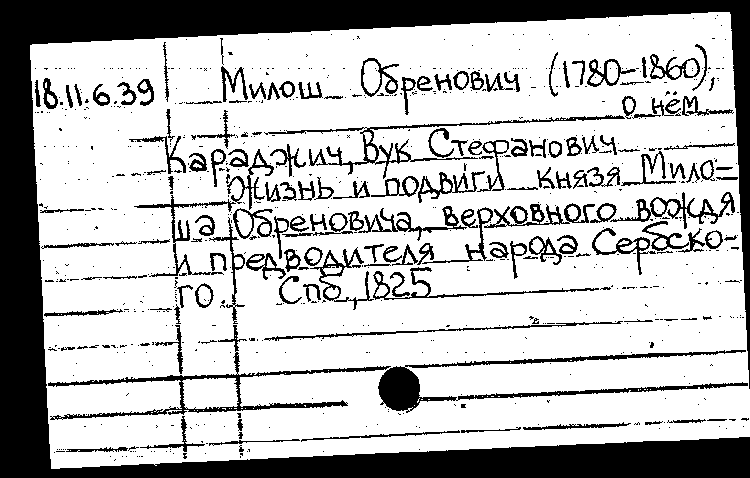 18.11.6.39 Милош Обренович (1780-1860),
о нём
Караджич, Вук Стефанович
Жизнь и подвиги князя Мило-
ша Обреновича, верховного вождя
и предводителя народа Сербско-
го. Спб., 1825